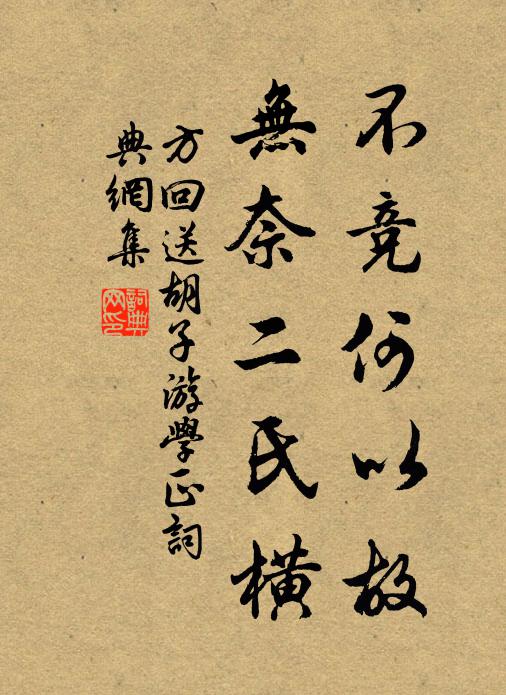 不竞何以故
無奈二氏橫
方回送胡子游學正詞
典網集
詞典
网印